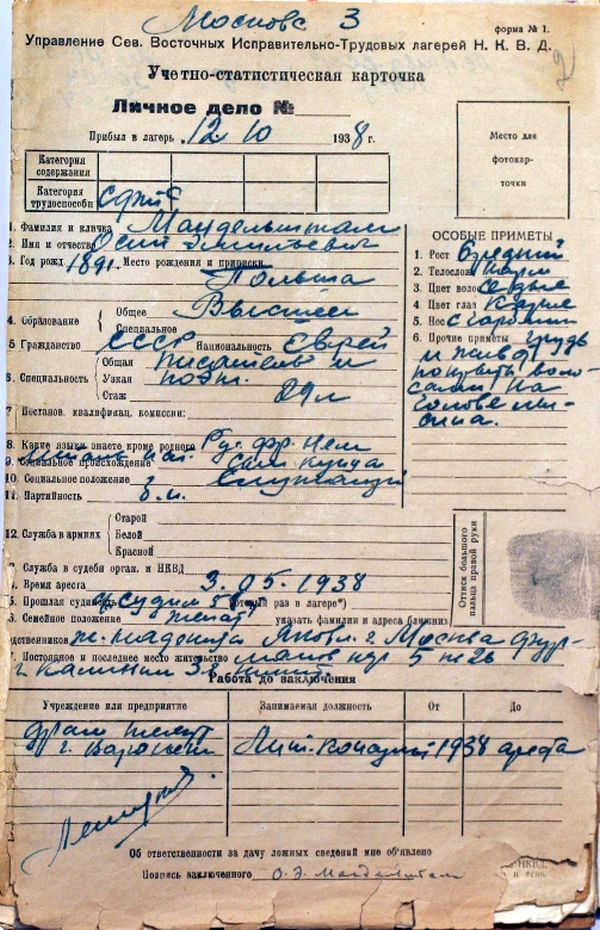 Москва 3
форма № 1.
Управление Сев. Восточных Исправительно-Трудовых лагерей Н. К. В. Д.
2
Учетно-статистическая карточка
Личное дело №
Прибыл в лагерь „12. 10 1938 г.
Место для фотокар- точки
Категория содержания
Категория трудоспособн
1. Фамилия и кличка Мандельштам
2. Имя и отчество Осип Эмильевич
3. Год рожд. 1891. Место рождения и приписки
Польша
4. Образование Общее Высшее
Специальное
5 Гражданство СССР Национальность Еврей
6. Специальность Общая писатель и
Узкая поэт.
Стаж 29 л
7 Постанов. квалификац. комиссии:
8. Какие языки знаете кроме родного Рус. фр. нем
9. Социальное происхождение сын купца
10. Социальное положение Служащий
11. Партийность б.п.
12. Служба в армиях Старой
Белой
Красной
Служба в судебн орган. и НКВД
Время ареста 3. 05. 1938
5. Прошлая судимость
который раз в лагере*)
6. Семейное положение женат указать фамилии и адреса ближних
родственников ж. Надежда Яковл. г. Москва
7. Постоянное и последнее место жительство
г. Калинин
ОСОБЫЕ ПРИМЕТЫ
1. Рост Средний
2. Телослож Норм
3. Цвет воло седые
4. Цвет глаз карие
5. Нос с горбин
6 Прочие приметы грудь
и живот
покрыты воло-
сами на
голове лы-
сина.
Оттиск большого пальца правой руки
Работа до заключения
Учреждение или предприятие
Занимаемая должность
От
До
драм театр
г. Воронеж
Лит. 1938 ареста
Об ответственности за дачу ложных сведений мне об'явлено
Подпись заключенного О. Э. Мандельштам
НКВД.